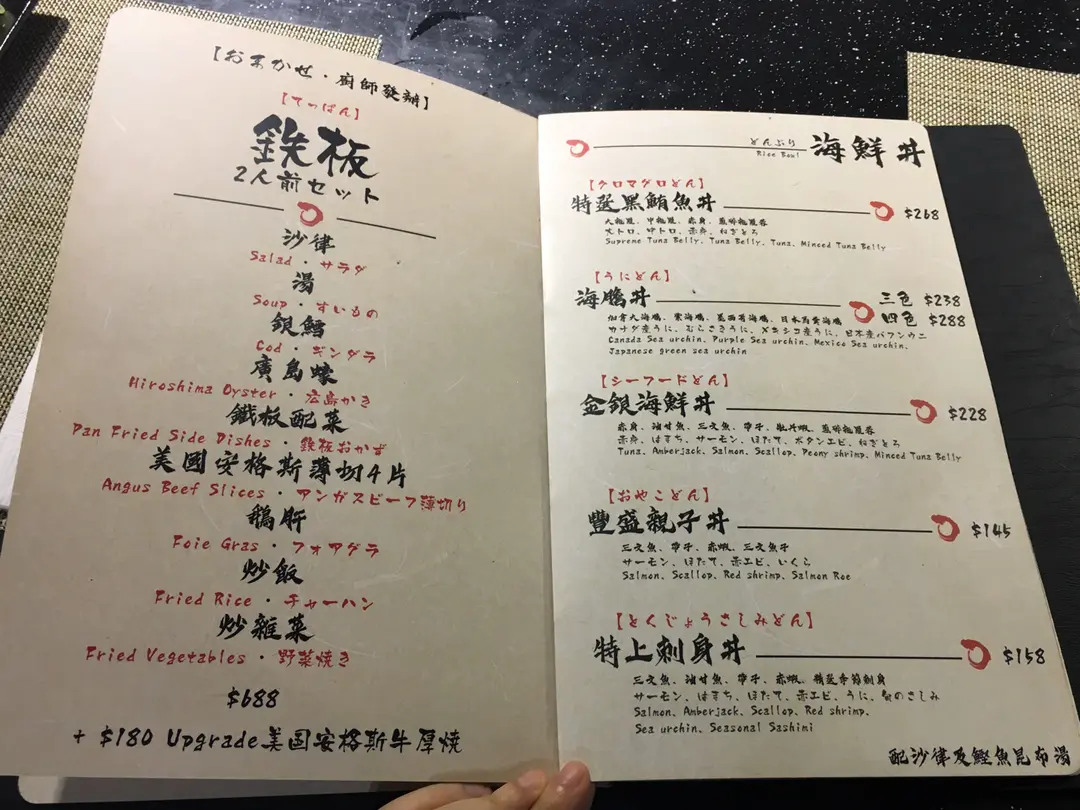 【おまかせ・廚師發辦】
【てっぱん】
鉄板
2人前セット
沙律
Salad・サラダ
湯
Soup・すいもの
銀鱈
Cod・ギンダラ
廣島蠔
Hiroshima Oyster・広島かき
鐵板配菜
Pan Fried Side Dishes・鉄板おかず
美國安格斯薄切4片
Angus Beef Slices・アンガスビーフ薄切り
鵝肝
Foie Gras・フォアグラ
炒飯
Fried Rice・チャーハン
炒雜菜
Fried Vegetables・野菜焼き
$688
+ $180 Upgrade美国安格斯牛厚燒
どんぶり
Rice Bowl 海鮮丼
【クロマグロどん】
特選黑鮪魚丼 $268
大拖羅、中拖羅、赤身、葱蓉拖羅蓉
大トロ、中トロ、赤身、ねぎとろ
Supreme Tuna Belly、Tuna Belly、Tuna、Minced Tuna Belly
【うにどん】
海膽丼 三色 $238
四色 $288
加拿大海膽、紫海膽、墨西哥海膽、日本馬糞海膽
カナダ産うに、むらさきうに、メキシコ産うに、日本産バフンウニ
Canada Sea urchin、Purple Sea urchin、Mexico Sea urchin、
Japanese green sea urchin
【シーフードどん】
金銀海鮮丼 $228
赤身、油甘魚、三文魚、帶子、牡丹蝦、葱蓉拖羅蓉
赤身、はまち、サーモン、ほたて、ボタンエビ、ねぎとろ
Tuna、Amberjack、Salmon、Scallop、Peony shrimp、Minced Tuna Belly
【おやこどん】
豐盛親子丼 $145
三文魚、帶子、赤蝦、三文魚子
サーモン、ほたて、赤エビ、いくら
Salmon、Scallop、Red shrimp、Salmon Roe
【とくじょうさしみどん】
特上刺身丼 $158
三文魚、油甘魚、帶子、赤蝦、精選季節刺身
サーモン、はまち、ほたて、赤エビ、うに、旬のさしみ
Salmon、Amberjack、Scallop、Red shrimp、
Sea urchin、Seasonal Sashimi
配沙律及鰹魚昆布湯